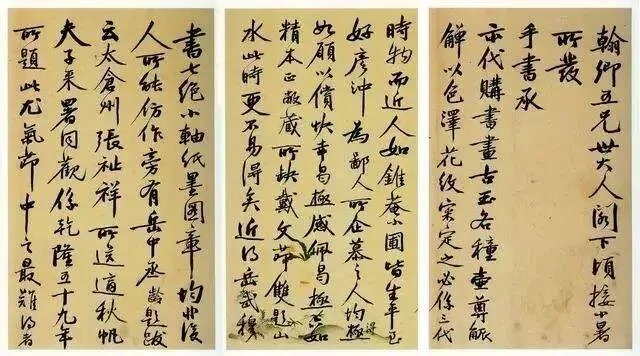 翰卿五兄世大人閣下頃接小暑
所發
手書承
示代購書畫古玉各種壺尊觚
觶以色澤花紋案定之必係三代
時物而近人如錐菴小圃皆生平至
好彥沖為鄙人所企慕之人均極
如願以償快幸曷極感佩曷極
精本正敝藏所缺戴文節雙題山
水此時更不易得矣近得岳武穆
書七絕小軸紙墨圖章均非後
人所能仿作旁有岳中丞齡題跋
云太倉州張祉祥所送適秋帆
夫子來署同觀係乾隆五十九年
所題此尤氣節中之最難得者